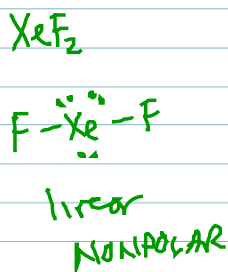 XeF₂
F-Xe-F
linear
NONPOLAR